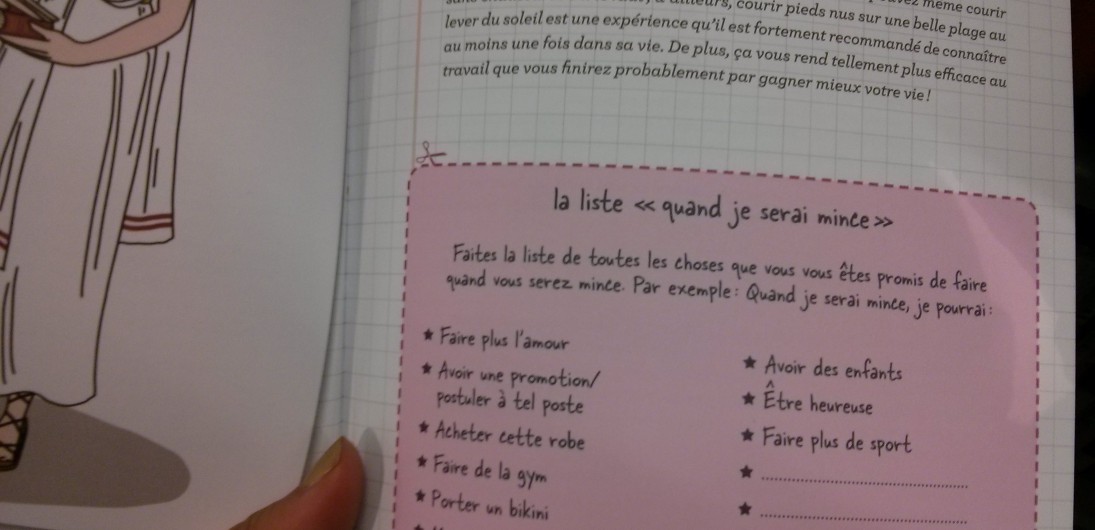 même courir
courir pieds nus sur une belle plage au
lever du soleil est une expérience qu'il est fortement recommandé de connaître
au moins une fois dans sa vie. De plus, ça vous rend tellement plus efficace au
travail que vous finirez probablement par gagner mieux votre vie !
la liste « quand je serai mince »
Faites la liste de toutes les choses que vous vous êtes promis de faire
quand vous serez mince. Par exemple : Quand je serai mince, je pourrai :
★ Faire plus l'amour
★ Avoir une promotion/
postuler à tel poste
★ Acheter cette robe
★ Faire de la gym
★ Porter un bikini
★ Avoir des enfants
★ Être heureuse
★ Faire plus de sport
★ ........................................
★ ........................................